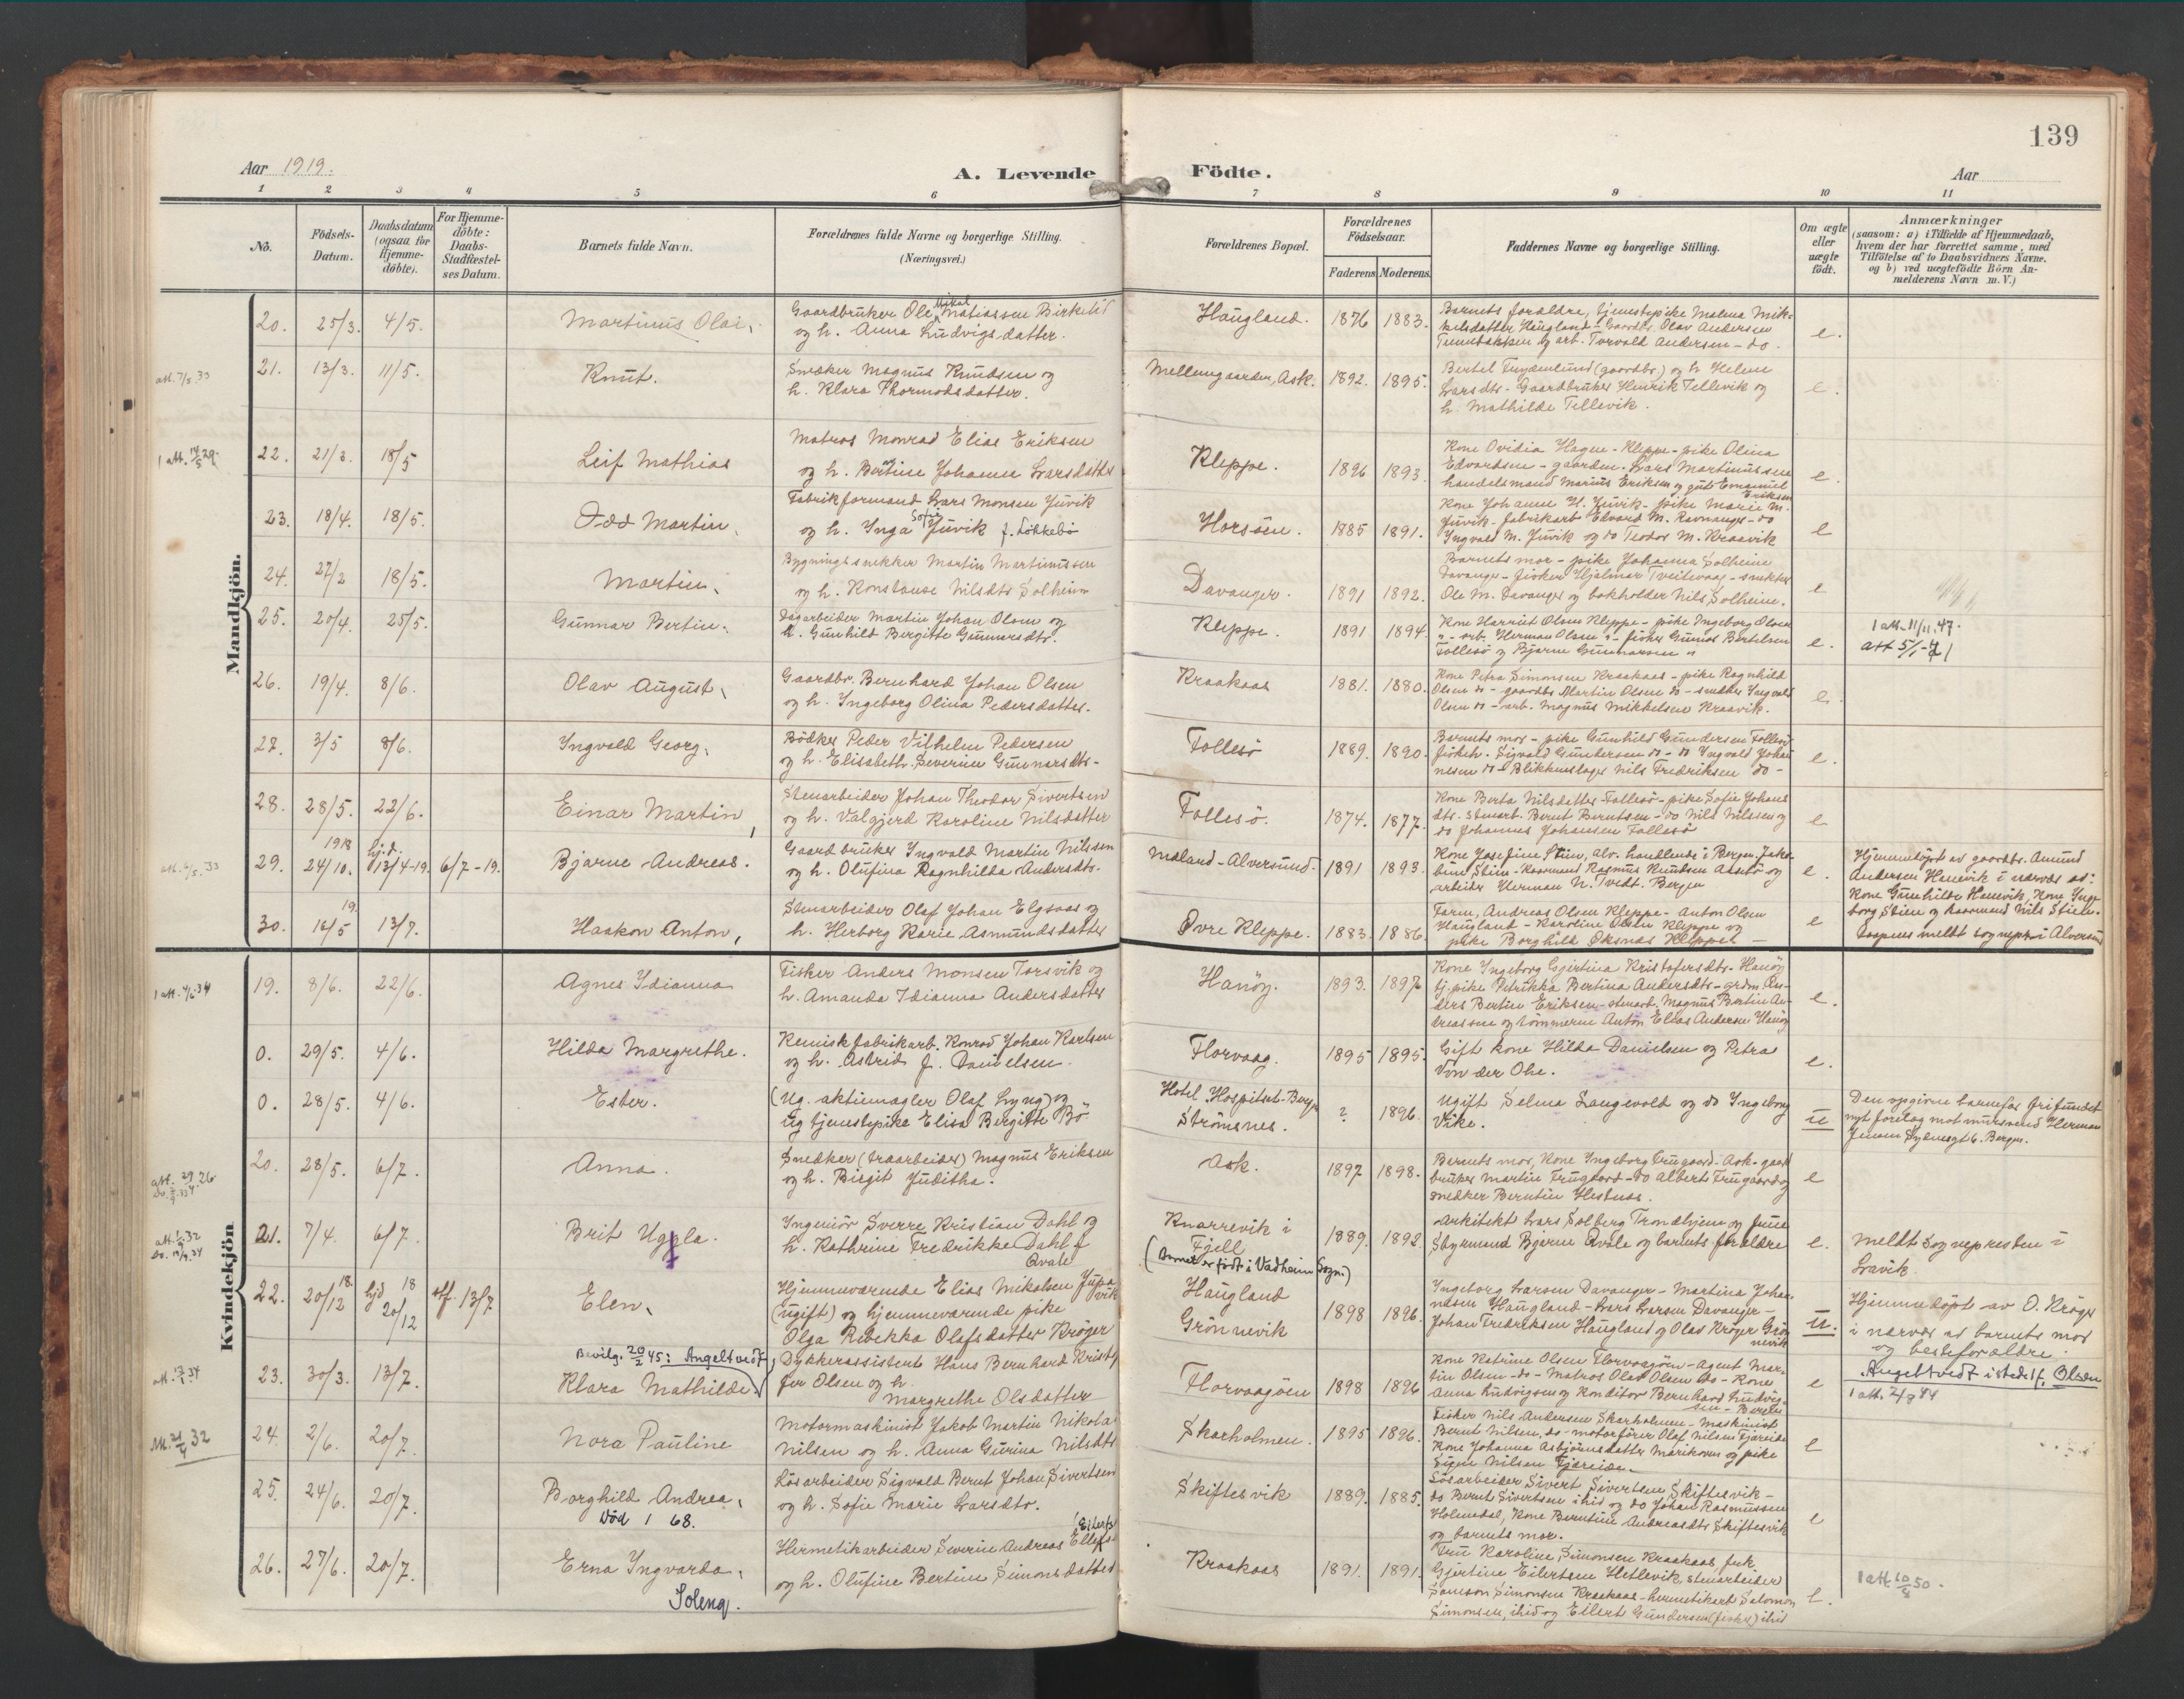 139
Aar 1919.
A. Levende Födte.
Aar
1 2 3 4 5 6 7 8 9 10 11
No.
Födsels-Datum.
Daabsdatum (ogsaa for Hjemmedöbte).
For Hjemmedöbte: Daabs-Stadfestelses Datum.
Barnets fulde Navn.
Forældrenes fulde Navne og borgerlige Stilling. (Næringsvei.)
Forældrenes Bopæl.
Forældrenes Födselsaar.
Faderens Moderens
Faddernes Navne og borgerlige Stilling.
Om ægte eller uægte födt.
Anmærkninger
(saasom: a) i Tilfælde af Hjemmedaab, hvem der har forrettet samme, med Tilföielse af to Daabsvidners Navne. og b) ved uægtefödte Börn Anmelderens Navn m. V.)
Mandkjön.
20. 25/3. 4/5. Martinus Olai.
Gaardbruker Ole Mikal Matiassen Birkelid
og h. Anna Ludvigsdatter.
Haugland. 1876 1883.
Barnets forældre, tjenestepike Malena Mik-
kelsdatter Haugland - Gaardbr. Olav Andersen
og arb. Torvald Andersen - do.
e.
21. 13/3. 11/5. Knut.
Snedker Magnus Knudsen og
h. Klara Thormodsdatter.
Mellemgaarden, Ask. 1892. 1895.
Bertel (gaardbr.) og h. Helene
Larsdtr. - Gaardbruker Henrik Tellevik og
h. Mathilde Tellevik.
e.
22. 21/3. 18/5 Leif Mathias
Matros Monrad Elias Eriksen
og h. Bertine Johanne Larsdatter
Kleppe. 1896 1893.
Kone Ovidia Hagen - Kleppe - pike Olina
Edvardsen - gaarden. Lars Martinussen
handelsmand Marius Eriksen og gut Emanuel
Eriksen
e.
23. 18/4. 18/5. Odd Martin
Fabrikformand Lars Monsen Juvik
og h. Inga Sofie Juvik f. Lökkebö
Horsöen. 1885 1891.
Kone Johanne H. Juvik - pike Marie M.
Juvik - fabrikarb Edvard M. Ravnanger - do
Ingvald M. Juvik og do Teodor M. Kraavik
e
24. 27/2 18/5. Martin.
Bygningssnekker Martin Martinussen
og h. Konstanse Nilsdtr Solheim
Davanger. 1891 1892.
Barnets mor - pike Johanna Solheim
Davanger - fisker Hjalmar Tveitevaag - snekker
Ole M. Davanger og bokholder Nils Solheim.
e
25. 20/4. 25/5. Gunnar Bertin.
Dagarbeider Martin Johan Olsen og
h. Gunhild Birgitte Gunnarsdtr.
Kleppe. 1891 1894.
Kone Harriet Olsen Kleppe - pike Ingeborg Olsen
" - arb. Herman Olsen " - fisker Gunnar Bertelsen
Follesö og Bjarne Gunnarsen "
e. 1 att. 11/11.47.
att 5/1-71
26. 19/4. 8/6. Olav August.
Gaardbr. Bernhard Johan Olsen
og h. Ingeborg Olina Pedersdatter.
Kraakaas 1881. 1880.
Kone Petra Simonsen Kraakaas - pike Ragnhild
Olsen do - gaardbr Martin Olsen do - snedker Ingvald
Olsen do - arb. Magnus Mikkelsen Kraavik.
e.
27. 3/5 8/6. Ingvald Georg.
Bödker Peder Vilhelm Pedersen
og h. Elisabeth Severine Gunnarsdtr.
Follesö 1889. 1890.
Barnets mor - pike Gunhild Gundersen Follesö
fiskeh. Sigvald Gundersen do - do Ingvald Johan-
nesen do - Blikkenslager Nils Fredriksen do -
e.
28. 28/5. 22/6. Einar Martin
Stenarbeider Johan Theodor Sivertsen
og h. Valgjerd Karoline Nilsdatter
Follesö. 1874. 1877.
Kone Berta Nilsdatter Follesö - pike Sofie Johans
dtr. stenarb. Bernt Berntsen - do Nils Nilssen og
do Johannes Johansen Follesö
e
att. 33
29. 1918 24/10. hj.d. 13/4-19. 6/7-19. Bjarne Andreas.
Gaardbruker Ingvald Martin Nilssen
og h. Olufina Ragnhilda Andersdtr.
Mæland - Alversund. 1891 1893.
Kone Josefine Stien, alv. handlende i Bergen, Jako-
bine Stien - Kaarmand Rasmus Knudsen og
arbeider Herman N. Tvedt. Bergen
e.
Hjemmedöpt av gaardbr. Amund
Andersen Hanevik i nærvær av:
Kone Gunhilde Hanevik, Kone Inge-
borg Stien og Nils Stien.
Daapen meldt sogneprt i Alversund
30. 19. 16/5 13/7. Haakon Anton,
Stenarbeider Olaf Johan Elgsaas og
h. Herborg Karie Asmundsdatter
Övre Kleppe. 1883. 1886.
Farm, Andreas Olsen Kleppe - Anton Olsen
Haugland - Karoline Olsen Kleppe og
pike Borghild Öksnes Kleppe
e
Kvindekjön
19. 8/6. 22/6. Agnes Idianna
Fisker Anders Monsen Torsvik og
h. Amanda Idianna Andersdatter
Hanöy. 1893. 1897
Kone Ingeborg Gjertina Kristofersdtr. Hanöy
tj.pike Petrikka Bertina Andersdtr. - grdm. An-
ders Bertin Eriksen - stenarb. Magnus Bertin An-
dreassen og tömmerm Anton Elias Andersen Hanöy
e.
0. 29/5. 4/6. Hilda Margrethe.
Kemisk fabrikarb. Konrad Johan Karlsen
og h. Astrid f. Danielsen.
Florvaag. 1895 1895.
Gift kone Hilda Danielsen og Petra
Von der Ohe.
e.
0. 28/5. 4/6. Ester.
(Ug. aktiemægler Olaf Lyng) og
Ug tjenestepike Elisa Bergitte Bö
Hotel Hospitset - Bergen
Strömsnes. ? 1896.
Ugift Selma Langevold og do Ingeborg
Vike.
u
Den opgivne barnefar frifundet
nyt forelæg mot murersvend Herman
Jensen 6. Bergen.
20. 28/5. 6/7. Anna.
Snedker (træarbeider) Magnus Eriksen
og h. Birgit Juditha.
Ask. 1897 1898.
Barnets mor, Kone Ingeborg Frugaard - Ask - gaard
bruker Martin Frugaard - do Albert Frugaard og
snedker Berntin Hestnæs.
e
21. 7/4. 6/7. Brit Uggla.
Ingeniör Sverre Kristian Dahl og
h. Kathrine Fredrikke Dahl f
Qvale
Knarrevik i
Fjell
(Barnet er födt i Vadheim Sogn.)
1889. 1892
Arkitekt Lars Solberg Trondhjem og frue
Styrmand Bjarne Qvale og barnets forældre
e. Meldt sognepresten i
Lavik.
22. 20/12 18. hjd 18 20/12 stf. 13/7 Elen.
Hjemmeværende Elias Mikalsen Jupe-
vik
(ugift) og hjemmeværende pike
Olga Rebekka Olafsdatter Kröger
Haugland
Grönnevik 1898 1896.
Ingeborg Larsen Davanger - Martina Johan-
nesen Haugland - Lars Larsen Davanger -
Johan Fredriksen Haugland og Olaf Kröger Grön-
nevik
u.
Hjemmedöpt av O. Kröger
i nærvær av barnets mor
og besteforældre.
23. 30/3. 13/7. Bevilg. 20/2 45: Angeltvedt,
Klara Mathilde
Dykkerassistent Hans Bernhard Kristof
fer Olsen og h.
Margrethe Olsdatter
Florvaagöen 1898 1896
Kone Katrine Olsen Florvaagöen - agent Mar-
tin Olsen - do - Matros Olav Olsen do - Kone
Anna Ludvigsen og Konditor Bernhard Ludvig-
sen - Bergen
e
Angeltvedt istedetf. Olsen
1 att. 2/8 44
24. 2/6. 20/7. Nora Pauline
Motormaskinist Jakob Martin Nikolai
Nilsen og h. Anna Gurina Nilsdtr
Skarholmen. 1895 1896.
Fisker Nils Andersen Skarholmen - Maskinist
Bernt Nilsen, do - motorförer Olaf Nilsen Fjæreide
Kone Johanna Asbjörnsdatter Marikoven og pike
Signe Nilsen Fjæreide.
e
25. 24/6. 20/7. Borghild Andrea.
Död 1 68.
Lösarbeider Sigvald Bernt Johan Sivertsen
og h. Sofie Marie Larsdtr.
Skiftesvik 1889. 1885.
Lösarbeider Sivert Sivertsen Skiftesvik -
do Bernt Sivertsen ibid og do Johan Rasmussen
Holmedal, Kone Berntine Andreasdtr Skiftesvik
og barnets mor.
e
26. 27/6. 20/7. Erna Ingvarda.
Soleng.
Hermetikarbeider Severin Andreas Ellefs-
og h. Olufine Bertine Simonsdatter
Kraakaas 1891. 1891.
Fru Karoline Simonsen Kraakaas, frk
Gjertine Eilertsen Hetlevik, stenarbeider
Samson Simonsen Kraakaas - hermetikarb Salomon
Simonsen, ibid og Eilert Gundersen (fisker) ibid
e.
1 att. 10/4 50.